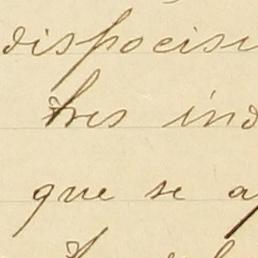 dispocisi
tres ind
que se a